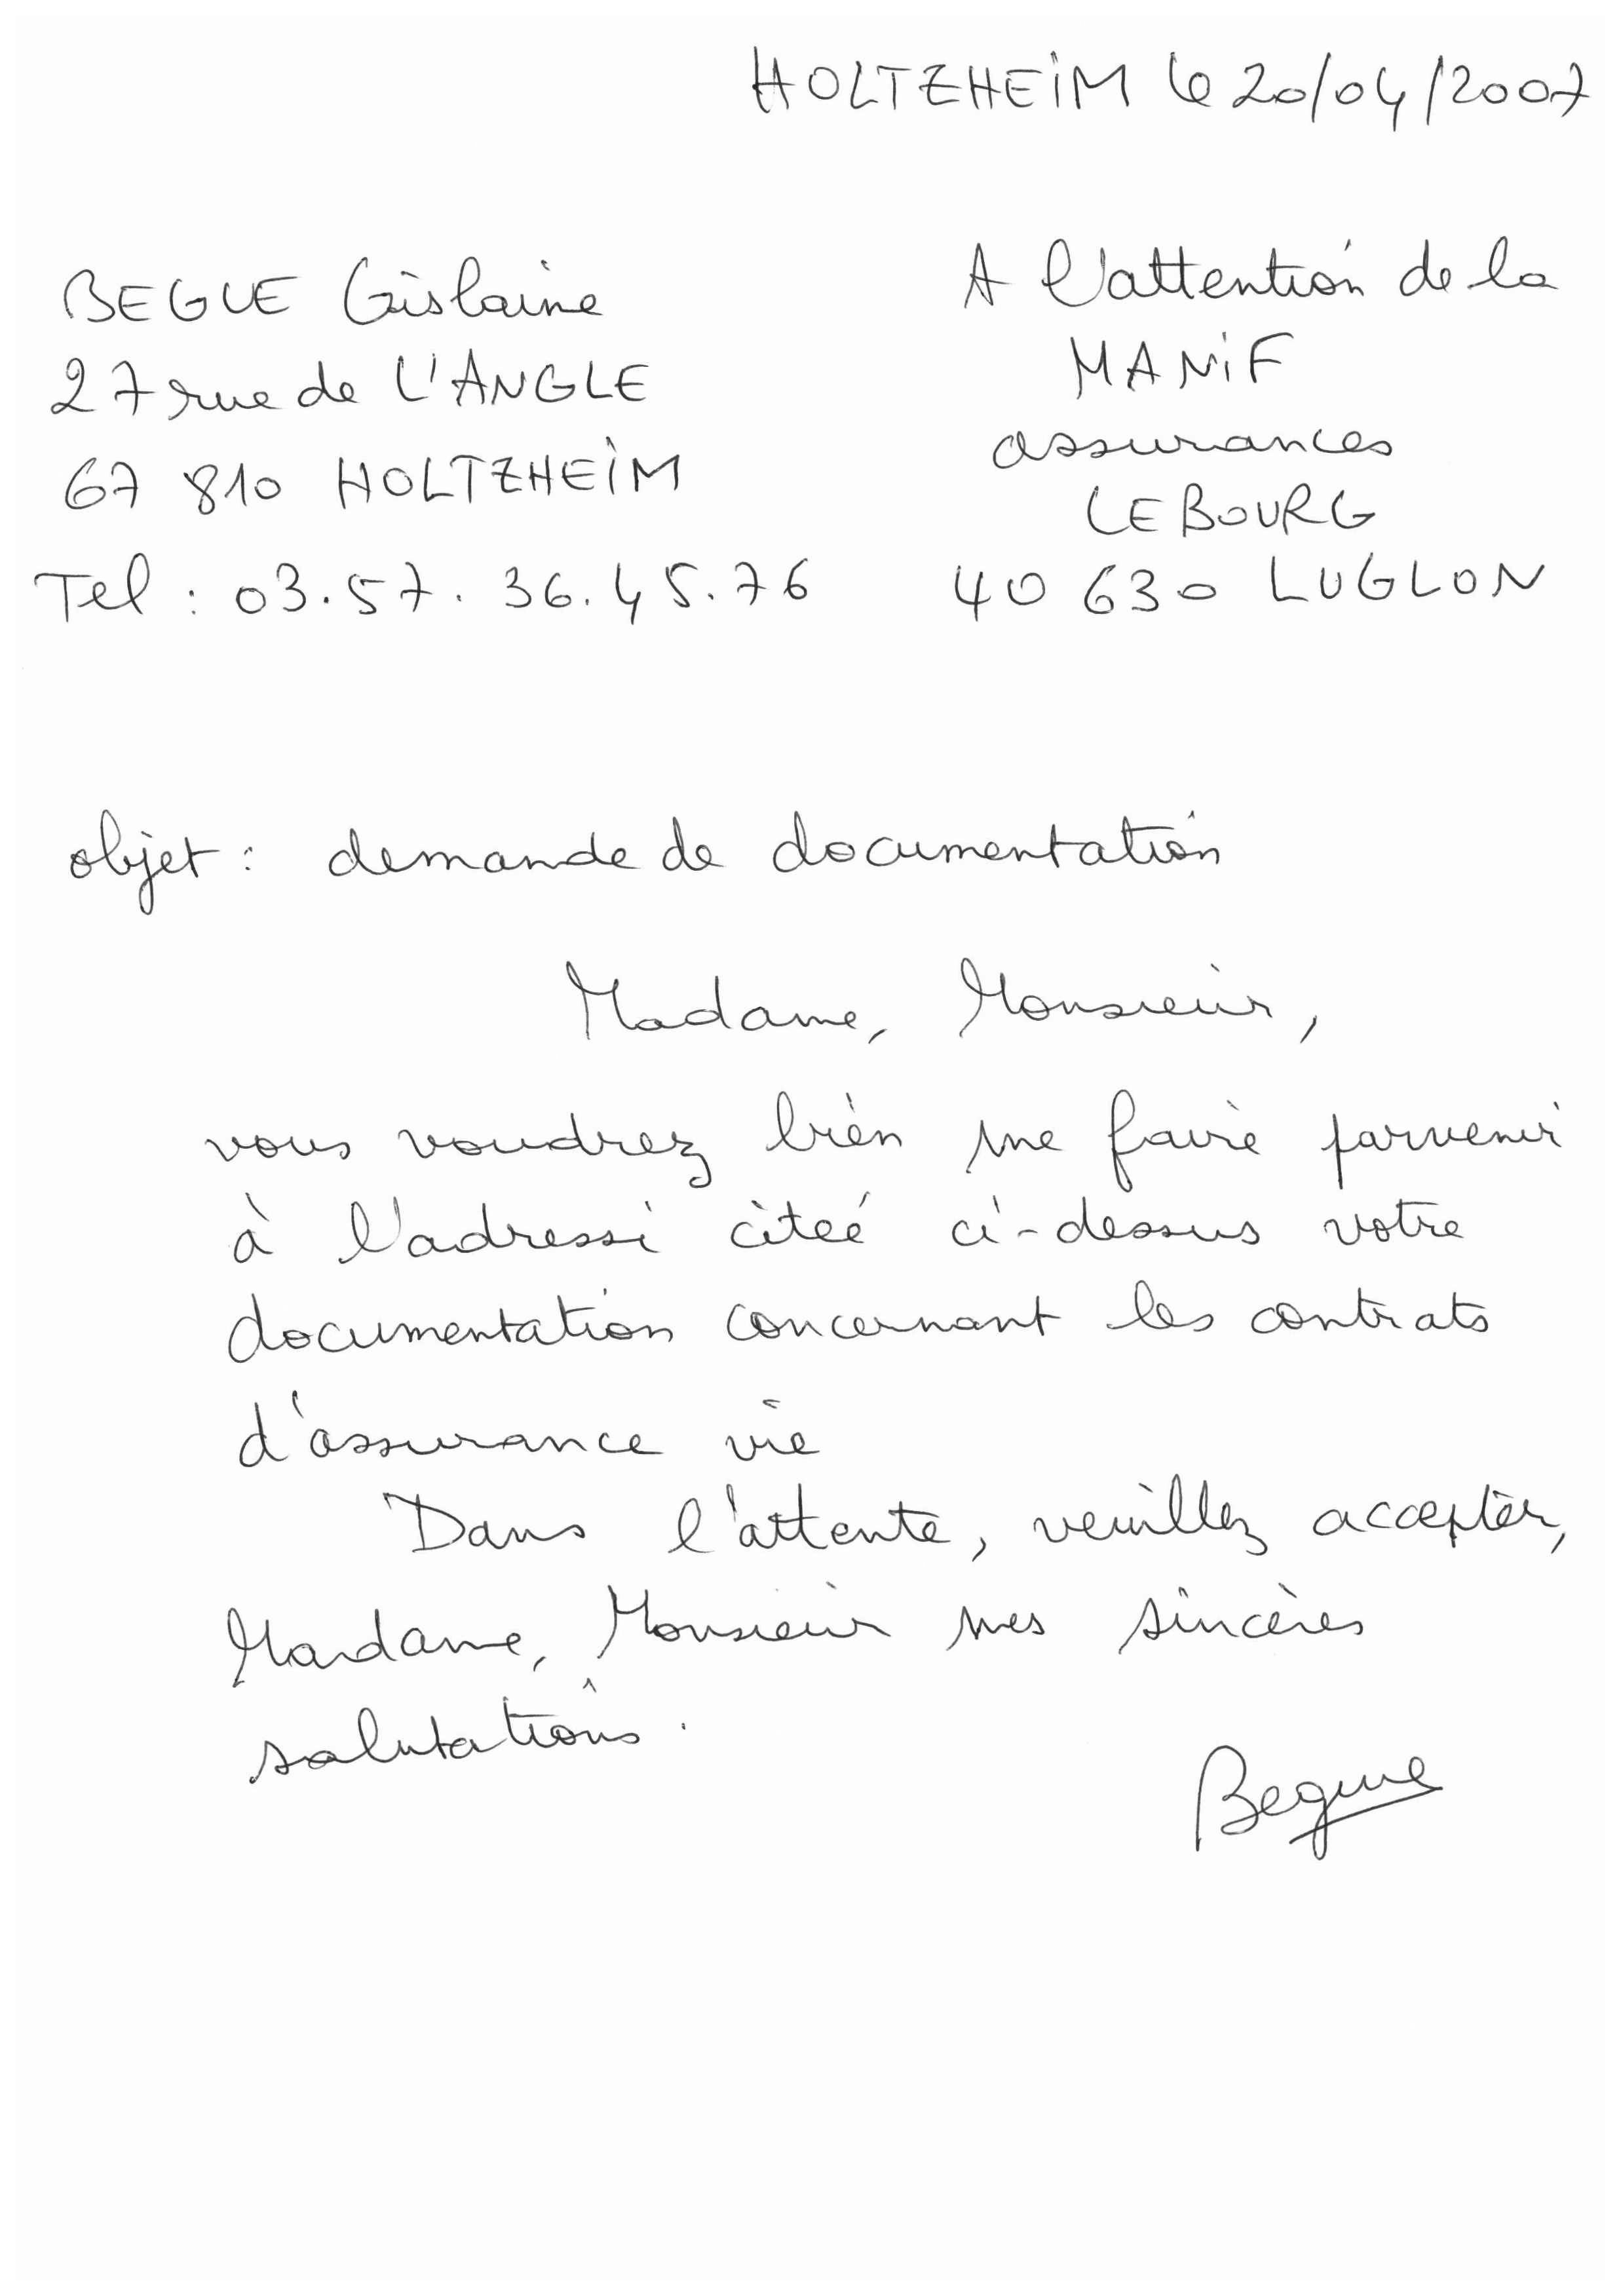 HOLTZHEIM le 20/04/2007
BEGUE Gislaine
27 rue de L'ANGLE
67 810 HOLTZHEIM
Tel : 03.57.36.45.76
A l'attention de la
MANIF
assurances
LE BOURG
40 630 LUGLON
objet : demande de documentation
Madame, Monsieur,
vous voudrez bien me faire parvenir
à l'adresse citée ci-dessus votre
documentation concernant les contrats
d'assurance vie
Dans l'attente, veuillez accepter,
Madame, Monsieur mes sincères
salutations.
Begue